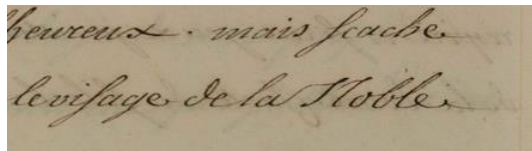 heureux. mais scache
le visage de la Noble